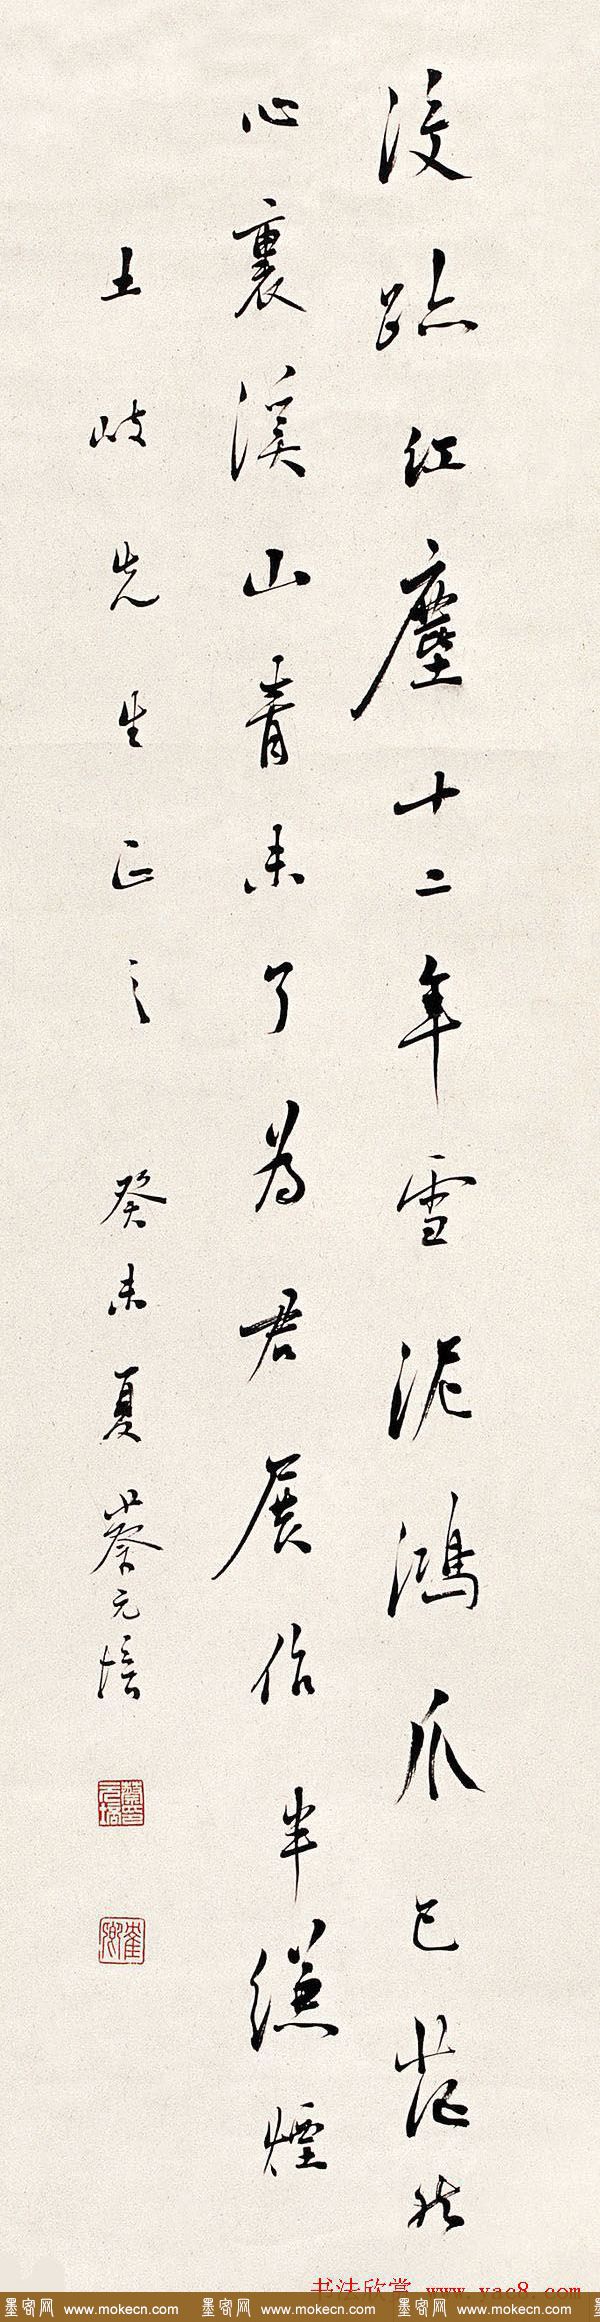 没跡紅塵十二年雪泥鴻爪已茫然
心裏溪山青未了為君展作半縑煙
土岐先生正之 癸未夏 蔡元培
蔡印元培
书法欣赏 www.yac8.com
墨客网 www.mokecn.com 墨客网 www.mokecn.com 墨客网 www.mokecn.com